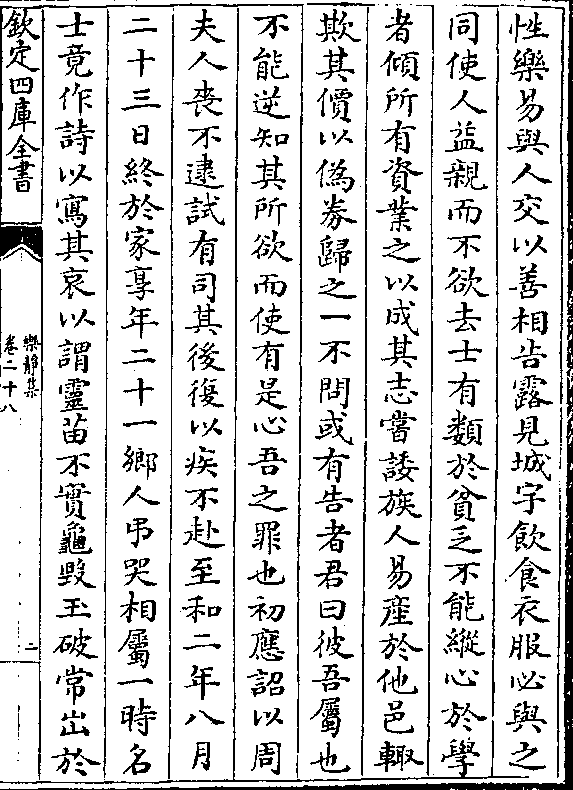 性樂易與人交以善相告露見城宇飲食衣服必與之
同使人益親而不欲去士有類於貧乏不能縱心於學
者傾所有資業之以成其志嘗諉族人易産於他邑輙
欺其價以偽券歸之一不問或有告者君曰彼吾屬也
不能逆知其所欲而使有是心吾之罪也初應詔以周
夫人喪不逮試有司其後復以疾不赴至和二年八月
二十三日終於家享年二十一鄉人弔哭相屬一時名
士竟作詩以寫其哀以謂靈苗不實龜毀玉破常出於
欽定四庫全書
樂静集
卷二十八
二